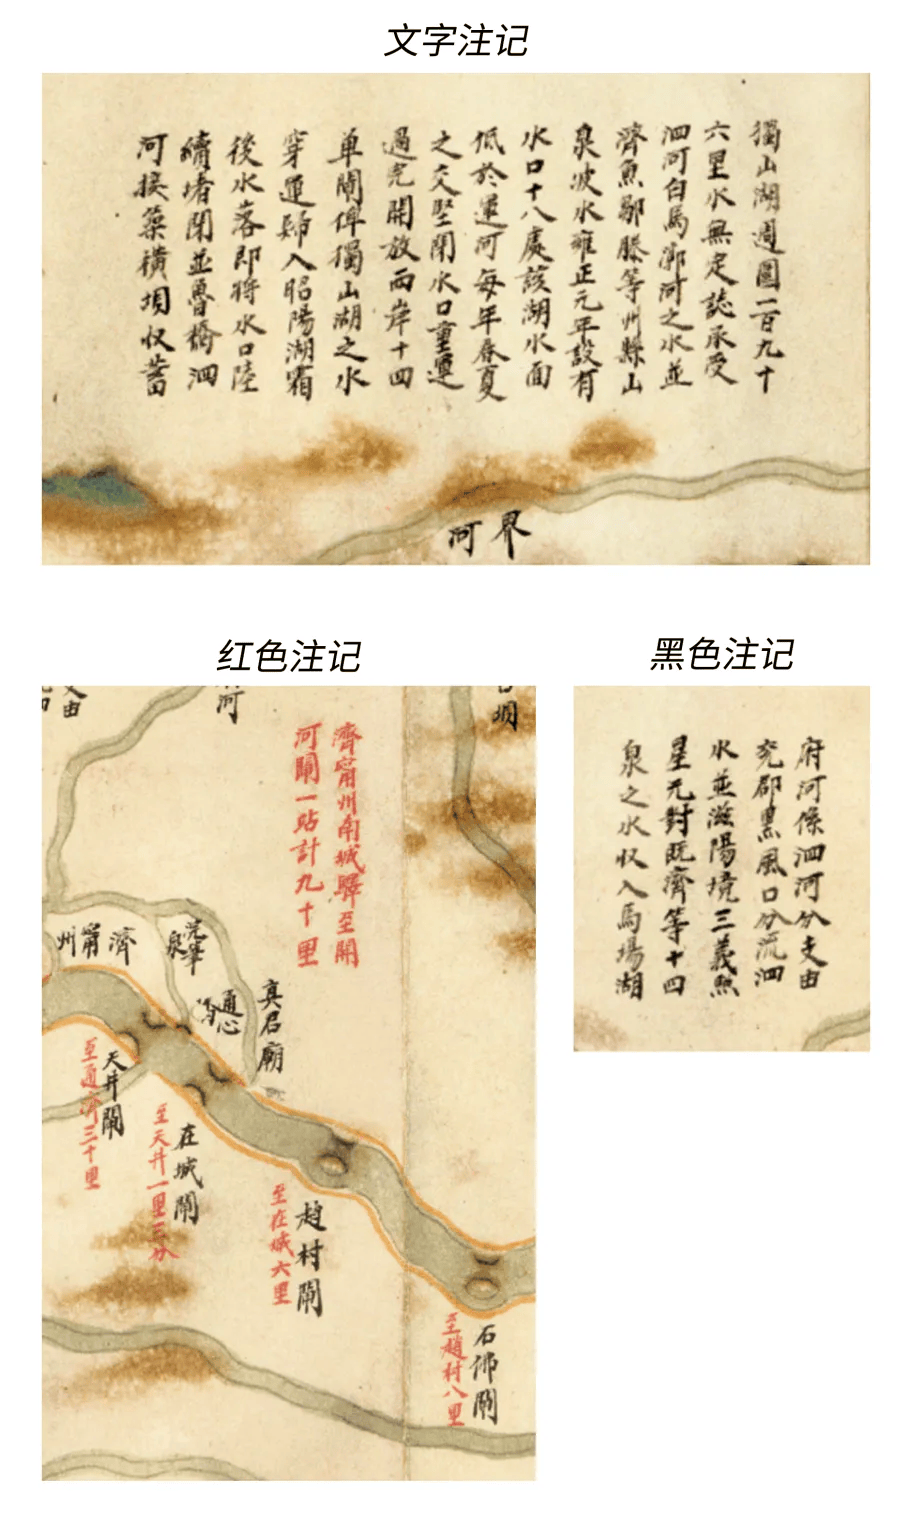 文字注记
獨山湖週圍一百九十
六里水無定誌承受
泗河白馬漷河之水並
濟魚鄒滕等州縣山
泉坡水雍正元年設有
水口十八處該湖水面
低於運河每年春夏
之交堅閉水口重運
過完開放両岸十四
单閘俾獨山湖之水
穿運歸入昭陽湖霜
後水落即將水口陸
續堵閉並魯橋泗
河挨築橫垻収蓄
界河
红色注记
濟甯州南城驛至開
河閘一站計九十里
濟甯州
浣筆泉
通心
真君廟
天井閘
至通濟三十里
在城閘
至天井一里三分
趙村閘
至在城六里
石佛閘
至趙村八里
黑色注记
府河係泗河分支由
兗郡黑風口分流泗
水並滋陽境三義煦
星元對既濟等十四
泉之水収入馬場湖